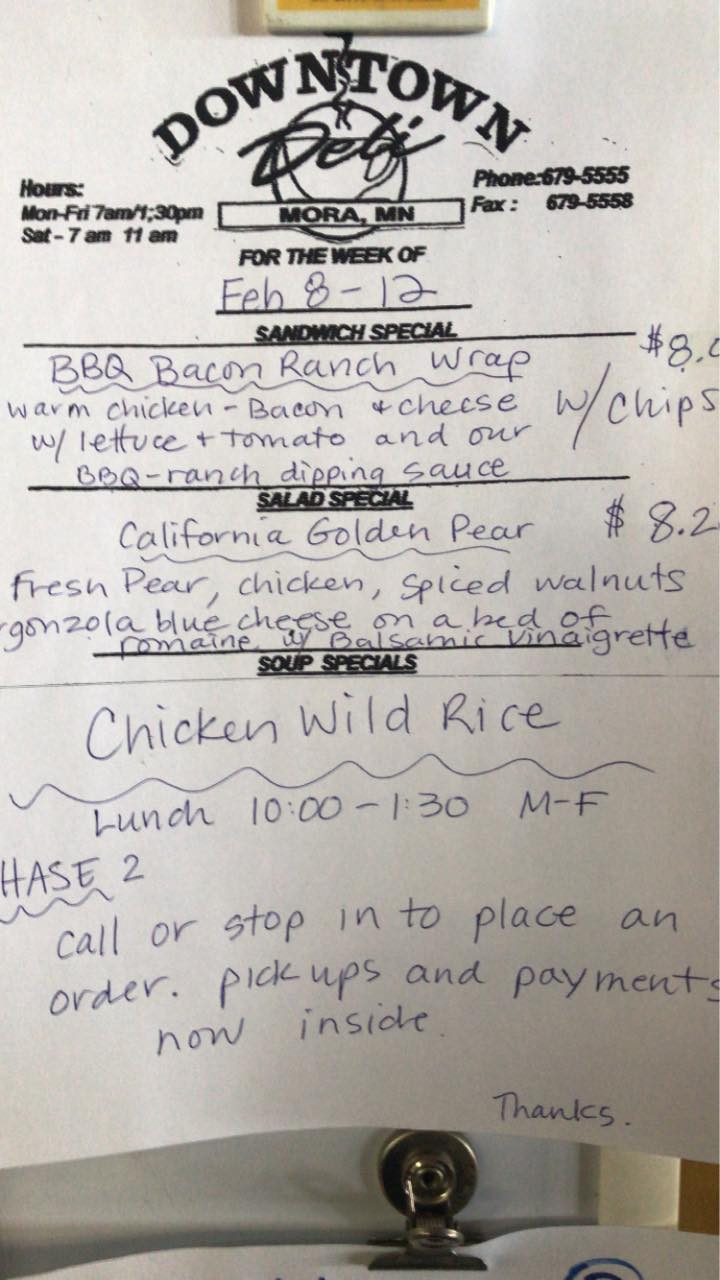 DOWNTOWN
Deli
MORA, MN
Hours:
Mon-Fri 7am/1;30pm
Sat - 7 am 11 am
Phone:679-5555
Fax : 679-5558
FOR THE WEEK OF
Feb 8 - 12
SANDWICH SPECIAL
BBQ Bacon Ranch Wrap $8.
warm chicken - Bacon + cheese w/ chips
w/ lettuce + tomato and our
BBQ-ranch dipping sauce
SALAD SPECIAL
California Golden Pear $8.2
Fresh Pear, chicken, spiced walnuts
rgonzola blue cheese on a bed of
romaine w/ Balsamic Vinaigrette
SOUP SPECIALS
Chicken Wild Rice
Lunch 10:00 - 1:30 M-F
HASE 2
call or stop in to place an
order. pick ups and payments
now inside.
Thanks.